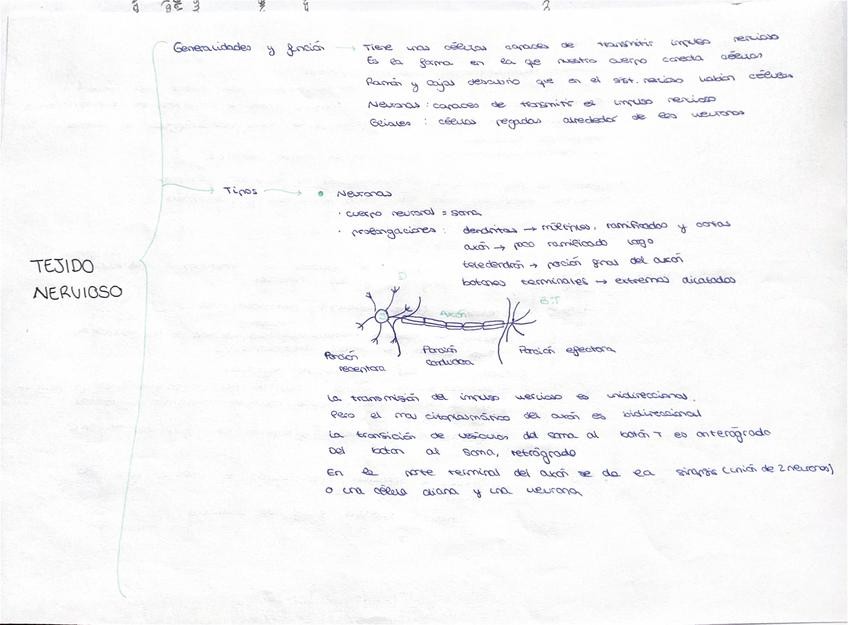 Generalidades y función → Tiene unas células capaces de transmitir impulso nervioso
Es la forma en la que nuestro cuerpo conecta células
Ramón y Cajas descubrió que en el sist. nervioso habían células
Neuronas : capaces de transmitir el impulso nervioso
Gliales : células pegadas alrededor de las neuronas
→ Tipos → • Neuronas
· cuerpo neuronal = soma
· prolongaciones : dendritas → múltiples, ramificados y cortas
axón → poco ramificado largo
telededrón → porción final del axón
botones terminales → extremos dilatados
TEJIDO
NERVIOSO
D
Axón
B.T
Porción
receptora
Porción
conductora
Porción efectora
La transmisión del impulso nervioso es unidireccional.
Pero el mov citoplasmático del axón es bidireccional
La transición de vesículas del soma al botón T es anterógrado
Del boton al soma, retrógrado
En la parte terminal del axón se da la sinapsis (unión de 2 neuronas)
o una célula diana y una neurona